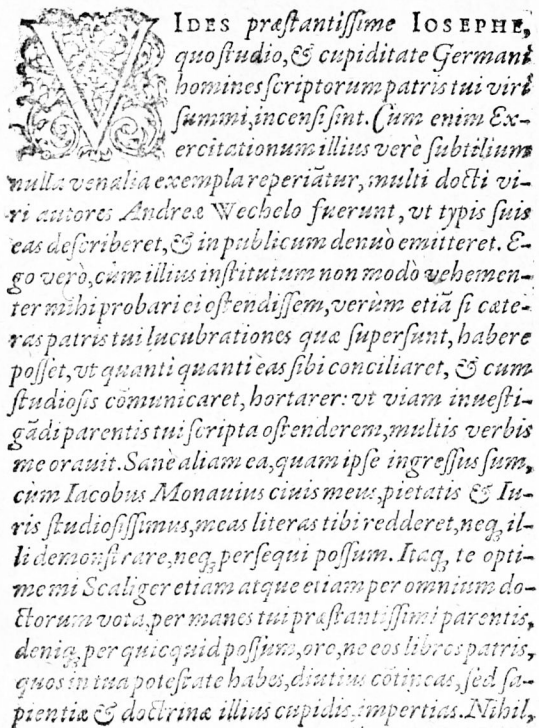 VIDES præſtantiſſime IOSEPHE,
quo ſtudio, & cupiditate Germani
homines ſcriptorum patris tui viri
ſummi, incenſi ſint. Cum enim Ex-
ercitationum illius verè ſubtilium
nulla venalia exempla reperiātur, multi docti vi-
ri autores Andreæ Wechelo fuerunt, vt typis ſuis
eas deſcriberet, & in publicum denuò emitteret. E-
go verò, cùm illius inſtitutum non modò vehemen-
ter mihi probari ei oſtendiſſem, verùm etiā ſi cæte-
ras patris tui lucubrationes quæ ſuperſunt, habere
poſſet, vt quanti quanti eas ſibi conciliaret, & cum
ſtudioſis cōmunicaret, hortarer: vt viam inueſti-
gādi parentis tui ſcripta oſtenderem, multis verbis
me orauit. Sanè aliam ea, quam ipſe ingreſſus ſum,
cùm Iacobus Monauius ciuis meus, pietatis & Iu-
ris ſtudioſiſſimus, meas literas tibi redderet, neqꝫ il-
li demonſtrare, neqꝫ perſequi poſſum. Itaqꝫ te opti-
me mi Scaliger etiam atque etiam per omnium do-
ctorum vota, per manes tui præſtantiſſimi parentis,
deniqꝫ per quicquid poſſum, oro, ne eos libros patris,
quos in tua poteſtate habes, diutius cōtineas, ſed ſa-
pientiæ & doctrinæ illius cupidis impertias. Nihil,